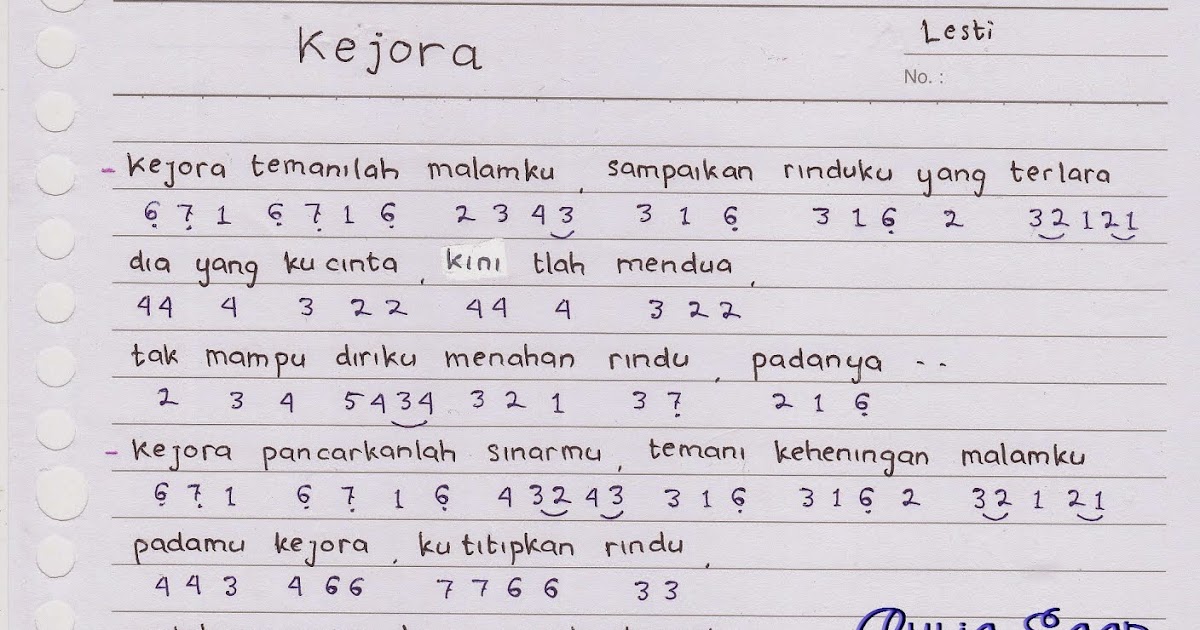 Kejora
Lesti
No. :
- Kejora temanilah malamku, sampaikan rinduku yang terlara
6̣ 7̣ 1 6̣ 7̣ 1 6̣ 2 3 4 3 3 1 6̣ 3 1 6̣ 2 3 2 1 2 1
dia yang ku cinta, kini tlah mendua,
4 4 4 3 2 2 4 4 4 3 2 2
tak mampu diriku menahan rindu, padanya - -
2 3 4 5 4 3 4 3 2 1 3 7̣ 2 1 6̣
- Kejora pancarkanlah sinarmu, temani keheningan malamku
6̣ 7̣ 1 6̣ 7̣ 1 6̣ 4 3 2 4 3 3 1 6̣ 3 1 6̣ 2 3 2 1 2 1
padamu kejora, ku titipkan rindu,
4 4 3 4 6 6 7 7 6 6 3 3